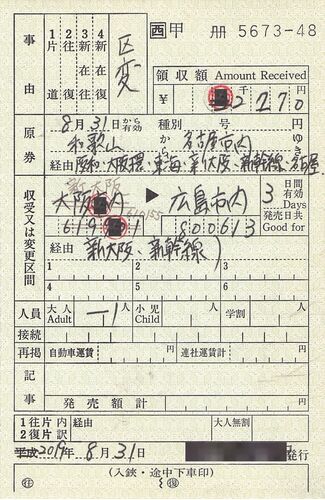 西 甲 冊 5673-48
事由
1片道 2往復 3新在往 4新在往復
区変
領収額 Amount Received
¥ 千 2270円
原券
8月31日から有効 種別 号
和歌山 から 名古屋市内 ゆき
経由 阪和・大阪環・東海・新大阪・新幹線・名古屋
収受又は変更区間
新大阪
大阪市内 ▶ 広島市内 3日間有効 Days
発売日共 Good for
800613
経由 新大阪・新幹線)
1 2 3
4 5 6
人員 大人 Adult 一1人 小児 Child 人 学割 人
接続
再掲 自動車運賃 円 連社運賃計 円
記事
発売額計 円
1往片 2復片 内訳 経由 大人無割 円
平成 2019年 8月31日 発行
(入鋏・途中下車印)